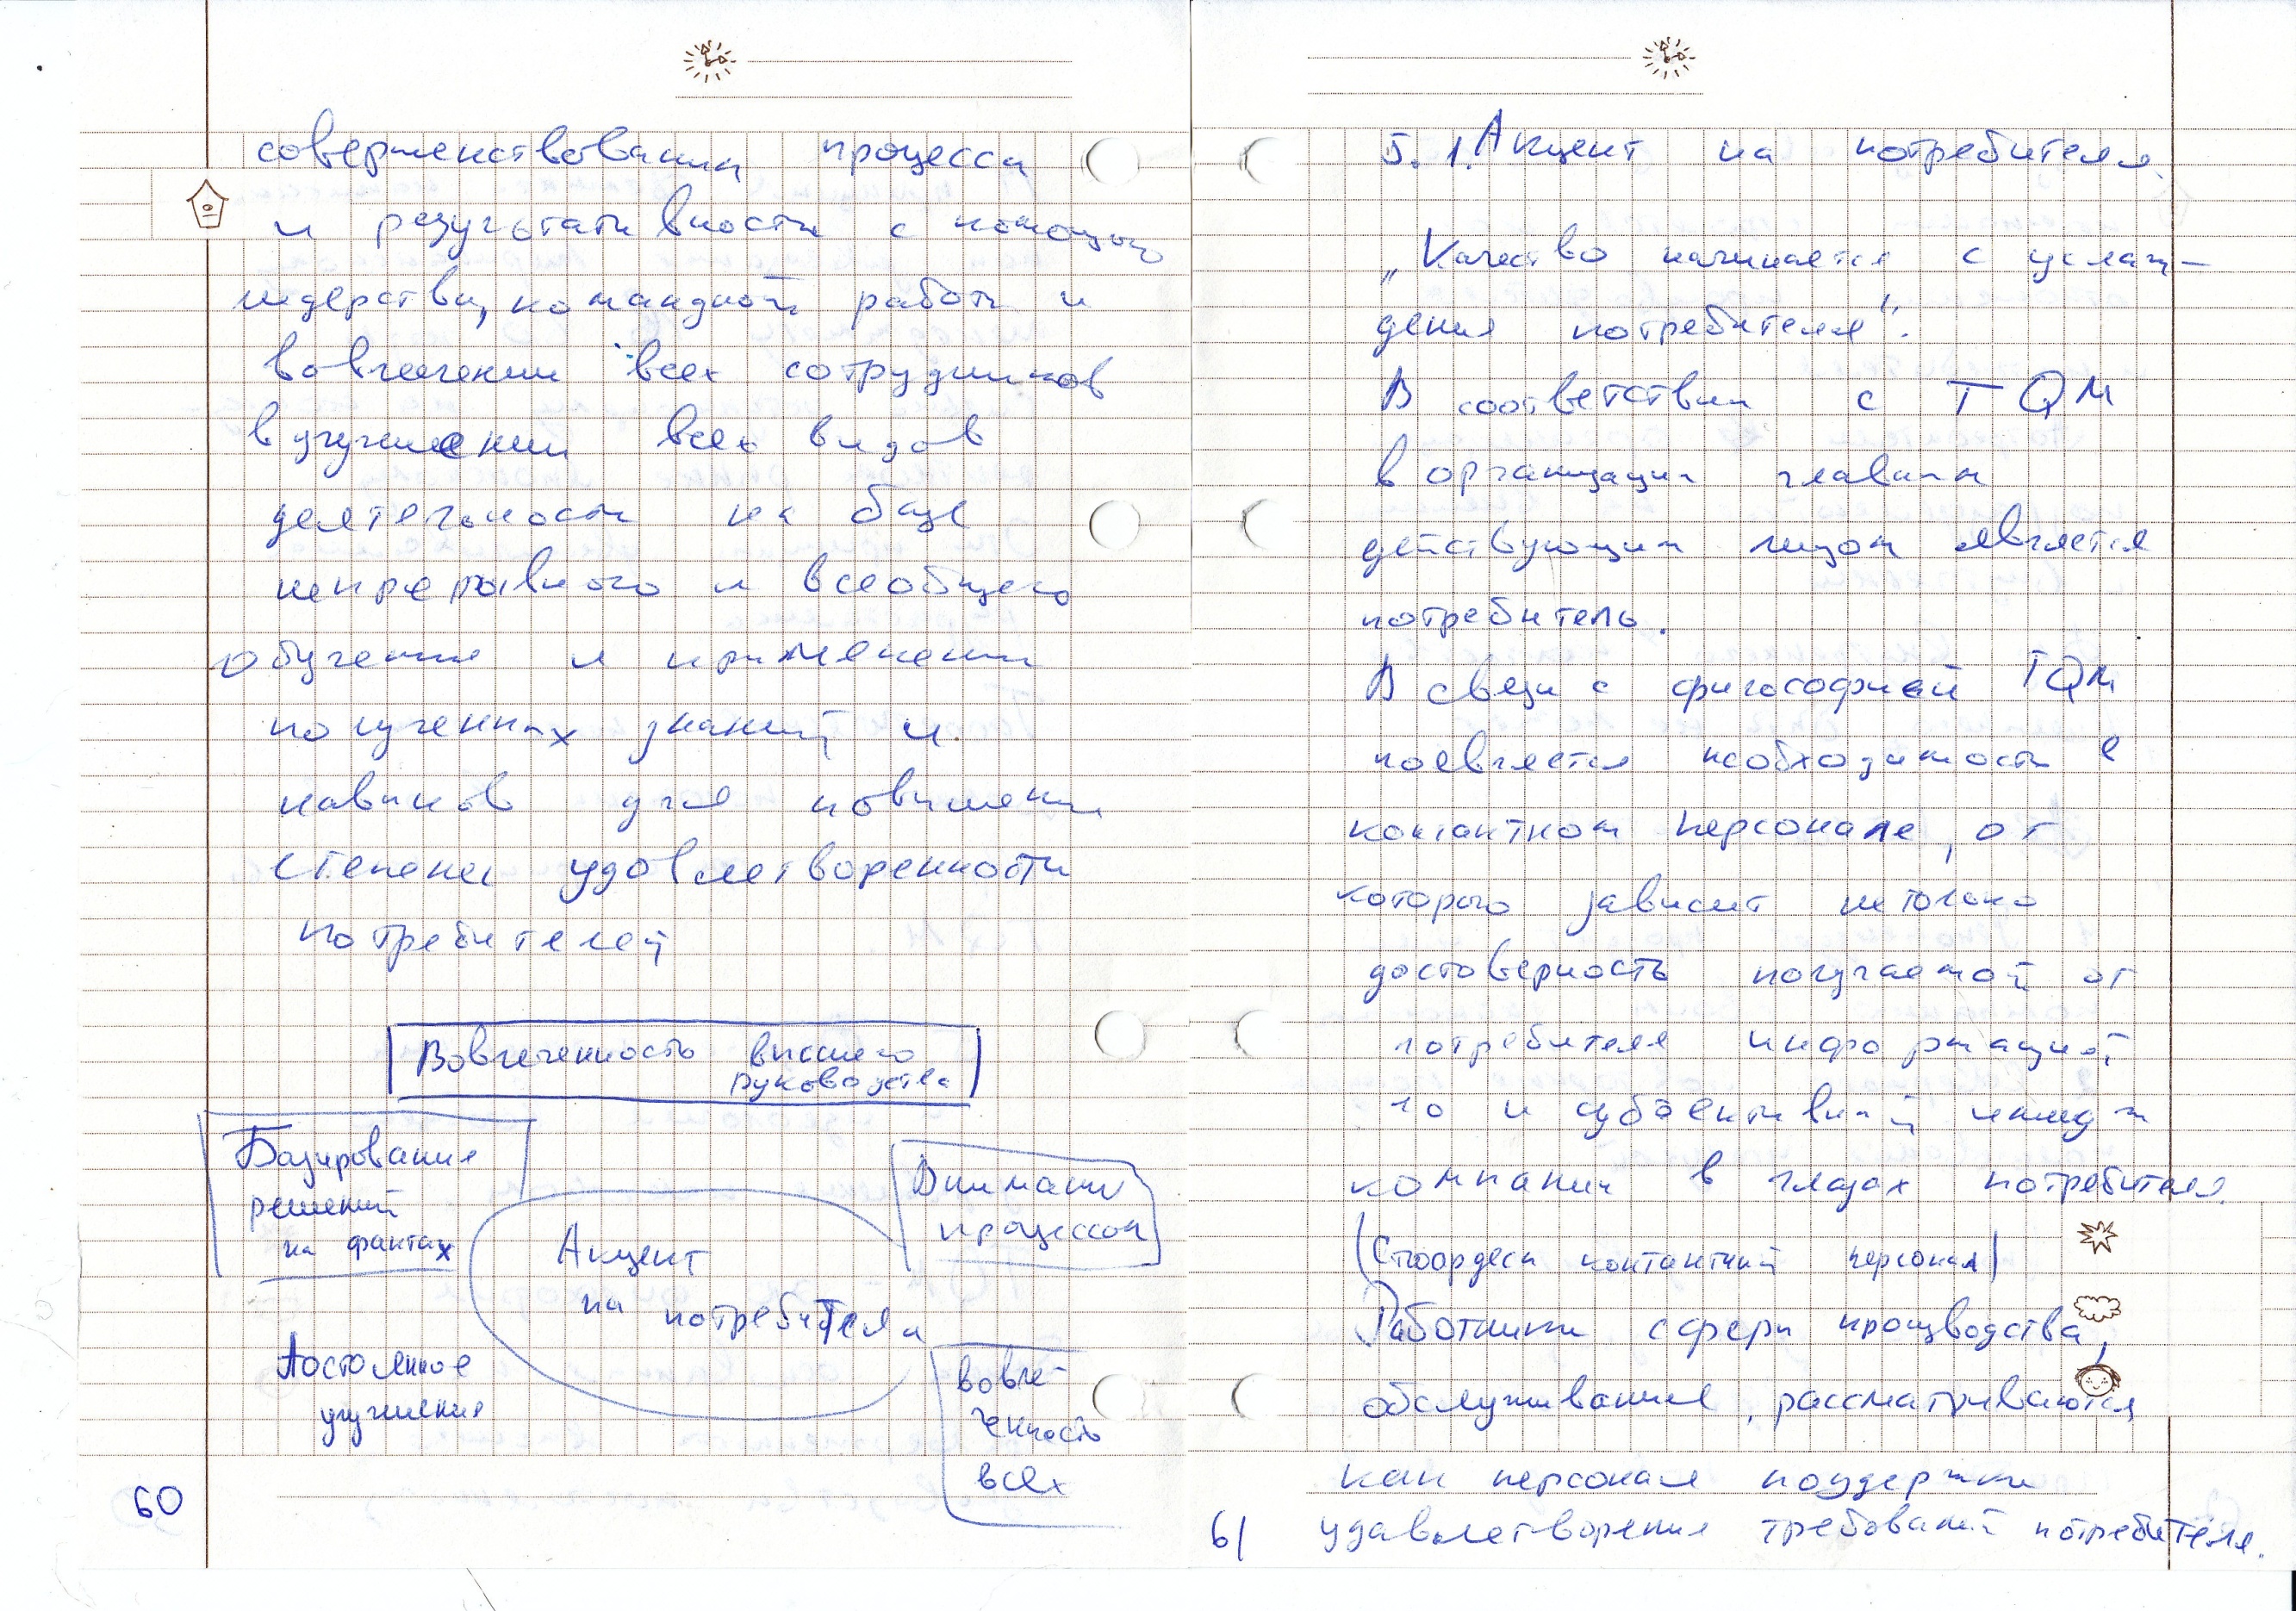 совершенствовании процесса
и результативности с помощью
лидерства, командной работы и
вовлечении всех сотрудников
в улучшении всех видов
деятельности на базе
непрерывного и всеобщего
обучения и применении
полученных знаний и
навыков для повышении
степени удовлетворенности
потребителей
Вовлеченность высшего
руководства
Базирования
решений
на фактах
Внимание
процессом
Акцент
на потребителя
Постоянное
улучшения
вовле-
ченность
всех
60
5.1. Акцент на потребителя.
„Качество начинается с услаж-
дения потребителя".
В соответствии с TQM
в организации главным
действующим лицом является
потребитель.
В связи с философией TQM
появляется необходимость в
контактном персонале, от
которого зависит не только
достоверность получаемой от
потребителя информацией
но и субъективный имидж
компании в глазах потребителя.
(Стюардеси контактный персонал)
Работники сферы производства,
обслуживания, рассматриваются
как персонал поддержки
удавлетворения требований потребителя.
61